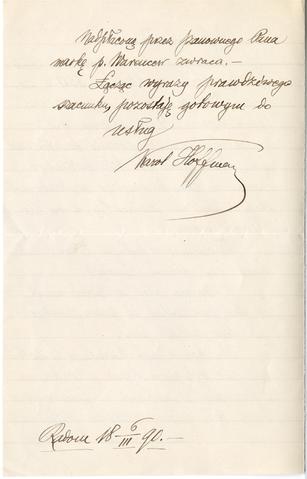 Nadpłaconą przez Szanownego Pana
markę p. Warencow zwraca. —
Łącząc wyrazy prawdziwego
szacunku, pozostaję gotowym do
usług
Karol Hoffman
Radom 18 6/III 90. —